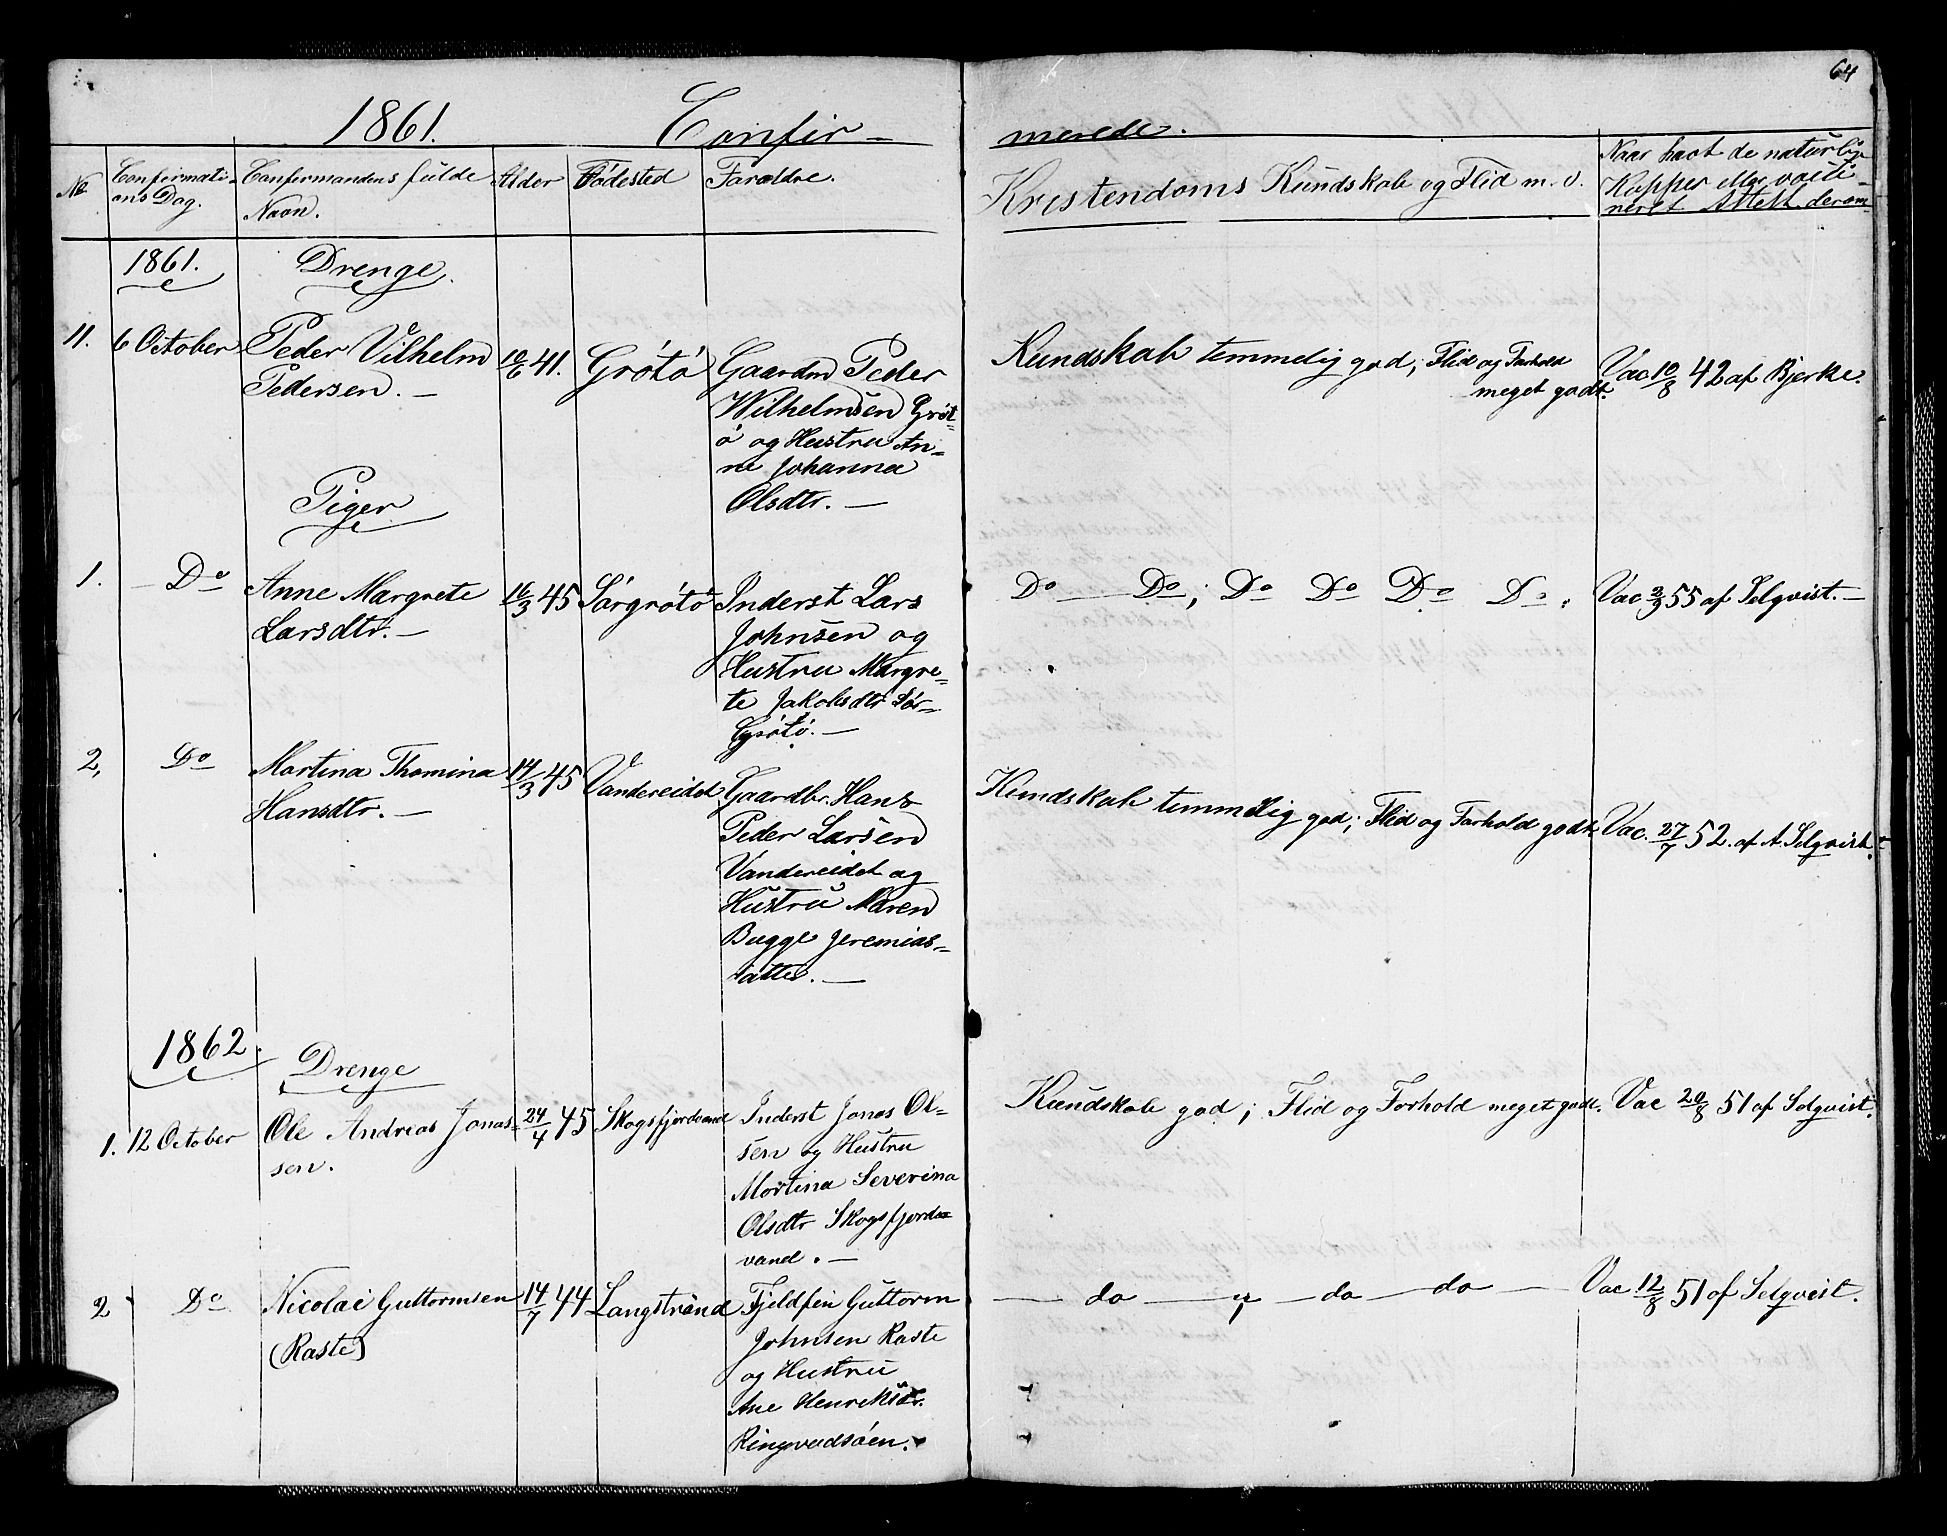 64
1861. Confir-
merede.
No
Confirmati-
ons Dag.
Confirmandens fulde
Navn.
Alder
Födested
Forældre.
Kristendoms Kundskab og Flid m. v.
Naar havt de naturlige
Kopper eller vacci-
neret. Attest derom
1861.
Drenge.
11. 6 October
Peder Vilhelm
Pedersen. -
10/6 41.
Grötö
Gaardm Peder
Wilhelmsen Gröt-
ö og Hustru An-
ne Johanna
Olsdtr. -
Kundskab temmelig god; Flid og Forhold
meget godt.
Vac 10/8 42 af Bjerke.
Piger
1. - Do
Anne Margrete
Larsdtr. -
16/3 45
Sörgrötö
Inderst Lars
Johnsen og
Hustru Margre-
te Jakobsdtr Sör-
Grötö. -
Do Do; Do Do Do Do.
Vac 2/9 55 af Selqvist. -
2, Do
Martina Thomina
Hansdtr. -
14/3 45
Vandereidet
Gaardbr. Hans
Peder Larsen
Vandereidet og
Hustru Maren
Bugge Jeremias-
datter. -
Kundskab temmelig god; Flid og Forhold godt.
Vac. 27/7 52. af A. Selqvist.
1862.
Drenge
1. 12 October
Ole Andreas Jonas-
sen.
24/4 45
Skogsfjordvand
Inderst Jonas Ol-
sen og Hustru
Martina Severina
Olsdtr Skogsfjord-
vand. -
Kundskab god; Flid og Forhold meget godt.
Vac 20/8 51 af Selqvist.
2 Do
Nicolai Guttormsen
(Raste)
14/7 44
Langstrand
Fjeldfin Guttorm
Johnsen Raste
og Hustru
Ane Henriksdtr.
Ringvadsöen.
- do - ; - do - do -
Vac 12/8 51 af Selqvist.